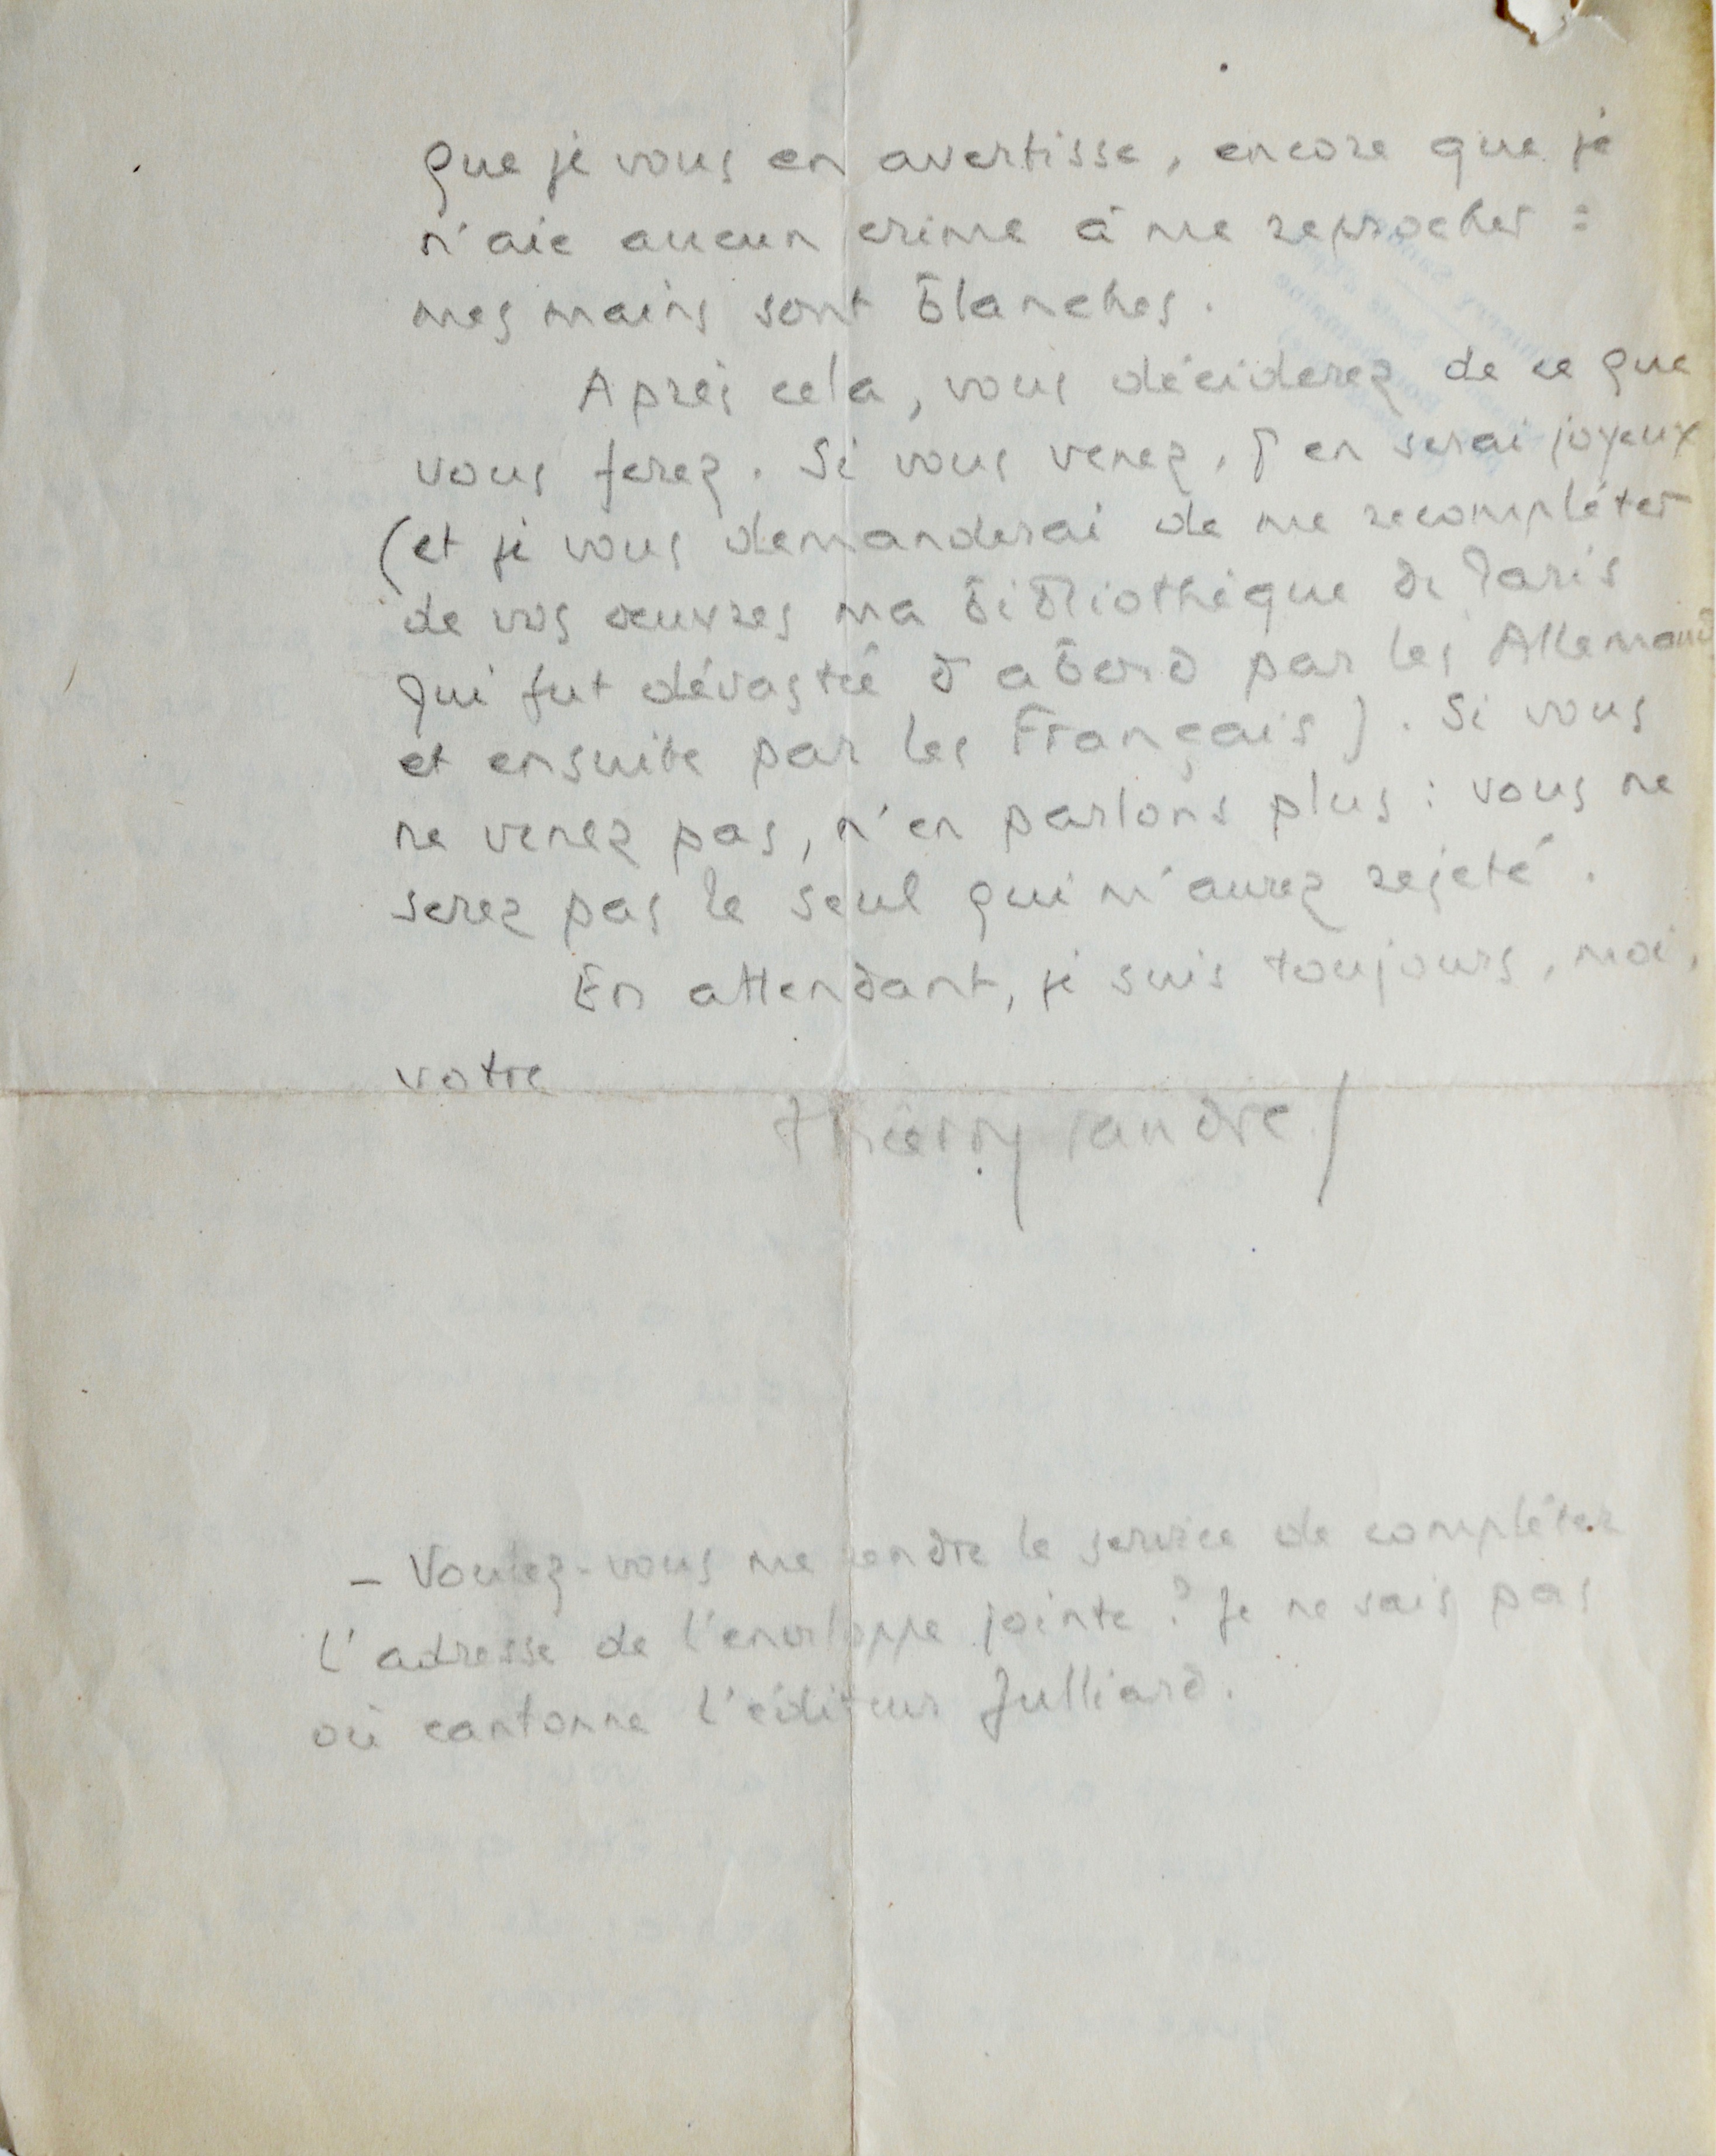 que je vous en avertisse, encore que je
n'aie aucun crime à me reprocher :
mes mains sont blanches.
Après cela, vous déciderez de ce que
vous ferez. Si vous venez, j'en serai joyeux
(et je vous demanderai de me recompléter
de vos œuvres ma bibliothèque de Paris
qui fut dévastée d'abord par les Allemands
et ensuite par les Français). Si vous
ne venez pas, n'en parlons plus : vous ne
serez pas le seul qui m'aurez rejeté.
En attendant, je suis toujours, moi,
votre
Thierry Sandre
– Voulez-vous me rendre le service de compléter
l'adresse de l'enveloppe jointe ? Je ne sais pas
où cantonne l'éditeur Julliard.